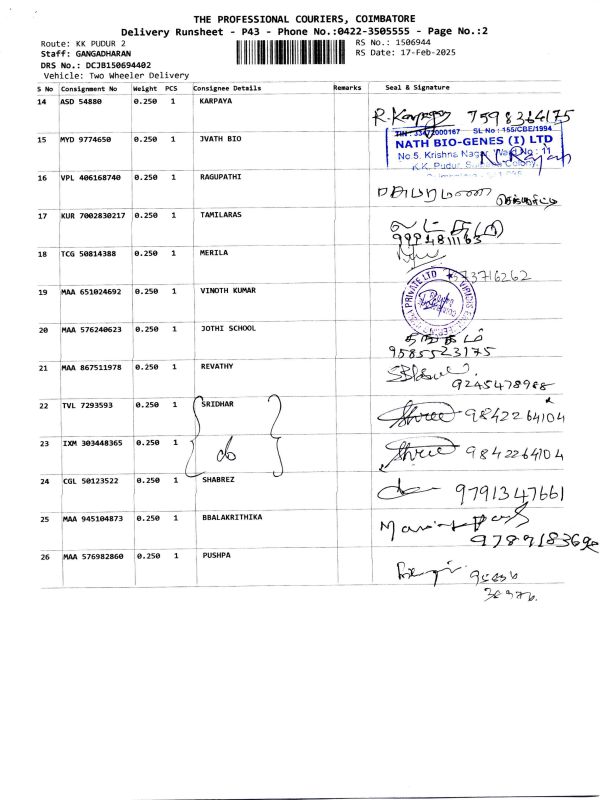 THE PROFESSIONAL COURIERS, COIMBATORE
Delivery Runsheet - P43 - Phone No.:0422-3505555 - Page No.:2
Route: KK PUDUR 2 RS No.: 1506944
Staff: GANGADHARAN RS Date: 17-Feb-2025
DRS No.: DCJB150694402
Vehicle: Two Wheeler Delivery
S No Consignment No Weight PCS Consignee Details Remarks Seal & Signature
14 ASD 54880 0.250 1 KARPAYA
7598364175
15 MYD 9774650 0.250 1 JVATH BIO
SL No : 155/CBE/1994
NATH BIO-GENES (I) LTD
No.5, Krishna Nagar, Ward No : 11
K.K. Pudur,
16 VPL 406168740 0.250 1 RAGUPATHI
17 KUR 7002830217 0.250 1 TAMILARAS
18 TCG 50814388 0.250 1 MERILA
19 MAA 651024692 0.250 1 VINOTH KUMAR
PRIVATE LTD
20 MAA 576240623 0.250 1 JOTHI SCHOOL
9585523175
21 MAA 867511978 0.250 1 REVATHY
9245478988
22 TVL 7293593 0.250 1 SRIDHAR Shree 9842264104
23 IXM 303448365 0.250 1 do Shree 9842264104
24 CGL 50123522 0.250 1 SHABREZ 9791347661
25 MAA 945104873 0.250 1 BBALAKRITHIKA
26 MAA 576982860 0.250 1 PUSHPA